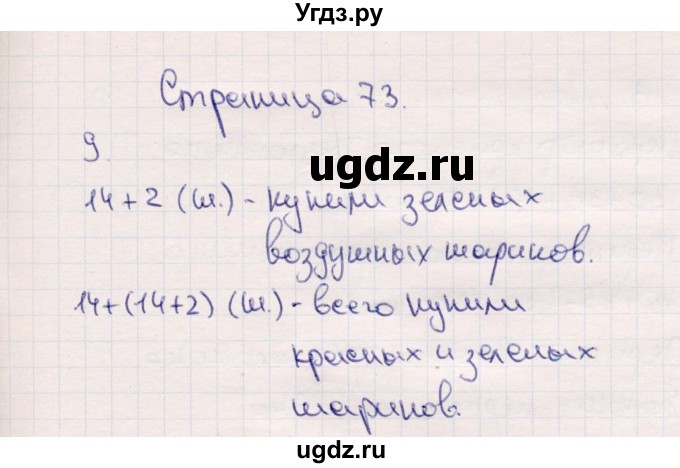 Угдз.ру
Страница 73.
9.
ugdz.ru
14 + 2 (ш.) - купили зеленых
воздушных шариков.
14+(14+2) (ш.) - всего купили
красных и зеленых
шариков.
ugdz.ru